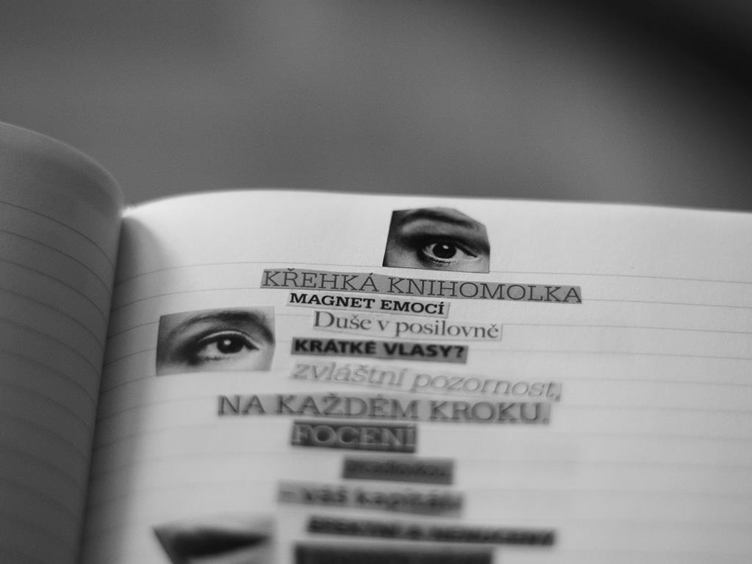 KŘEHKÁ KNIHOMOLKA
MAGNET EMOCÍ
Duše v posilovně
KRÁTKÉ VLASY?
zvláštní pozornost,
NA KAŽDÉM KROKU.
FOCENÍ
– váš kapitál: